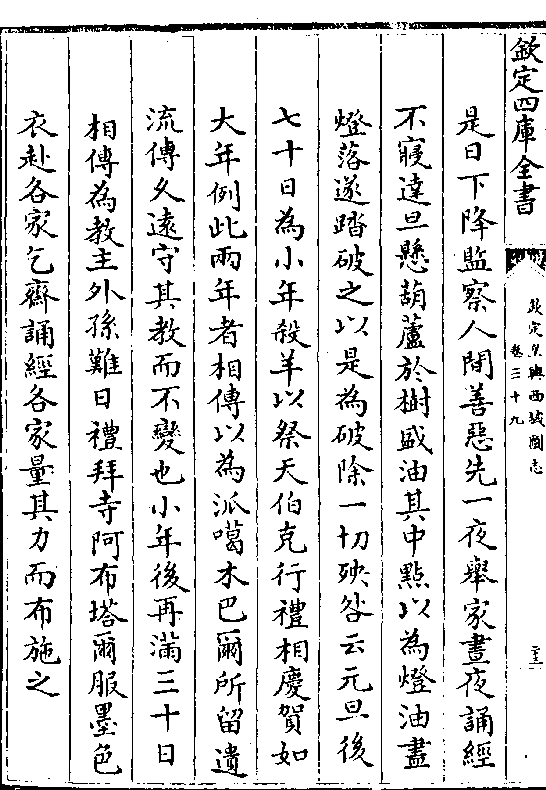 欽定四庫全書
欽定皇輿西域圖志
卷三十九
是日下降監察人間善惡先一夜舉家晝夜誦經
不寢達旦懸葫蘆於樹盛油其中點以為燈油盡
燈落遂踏破之以是為破除一切殃咎云元旦後
七十日為小年殺羊以祭天伯克行禮相慶賀如
大年例此兩年者相傳以為派噶木巴爾所留遺
流傳久遠守其教而不變也小年後再滿三十日
相傳為教主外孫難日禮拜寺阿布塔爾服墨色
衣赴各家乞齋誦經各家量其力而布施之